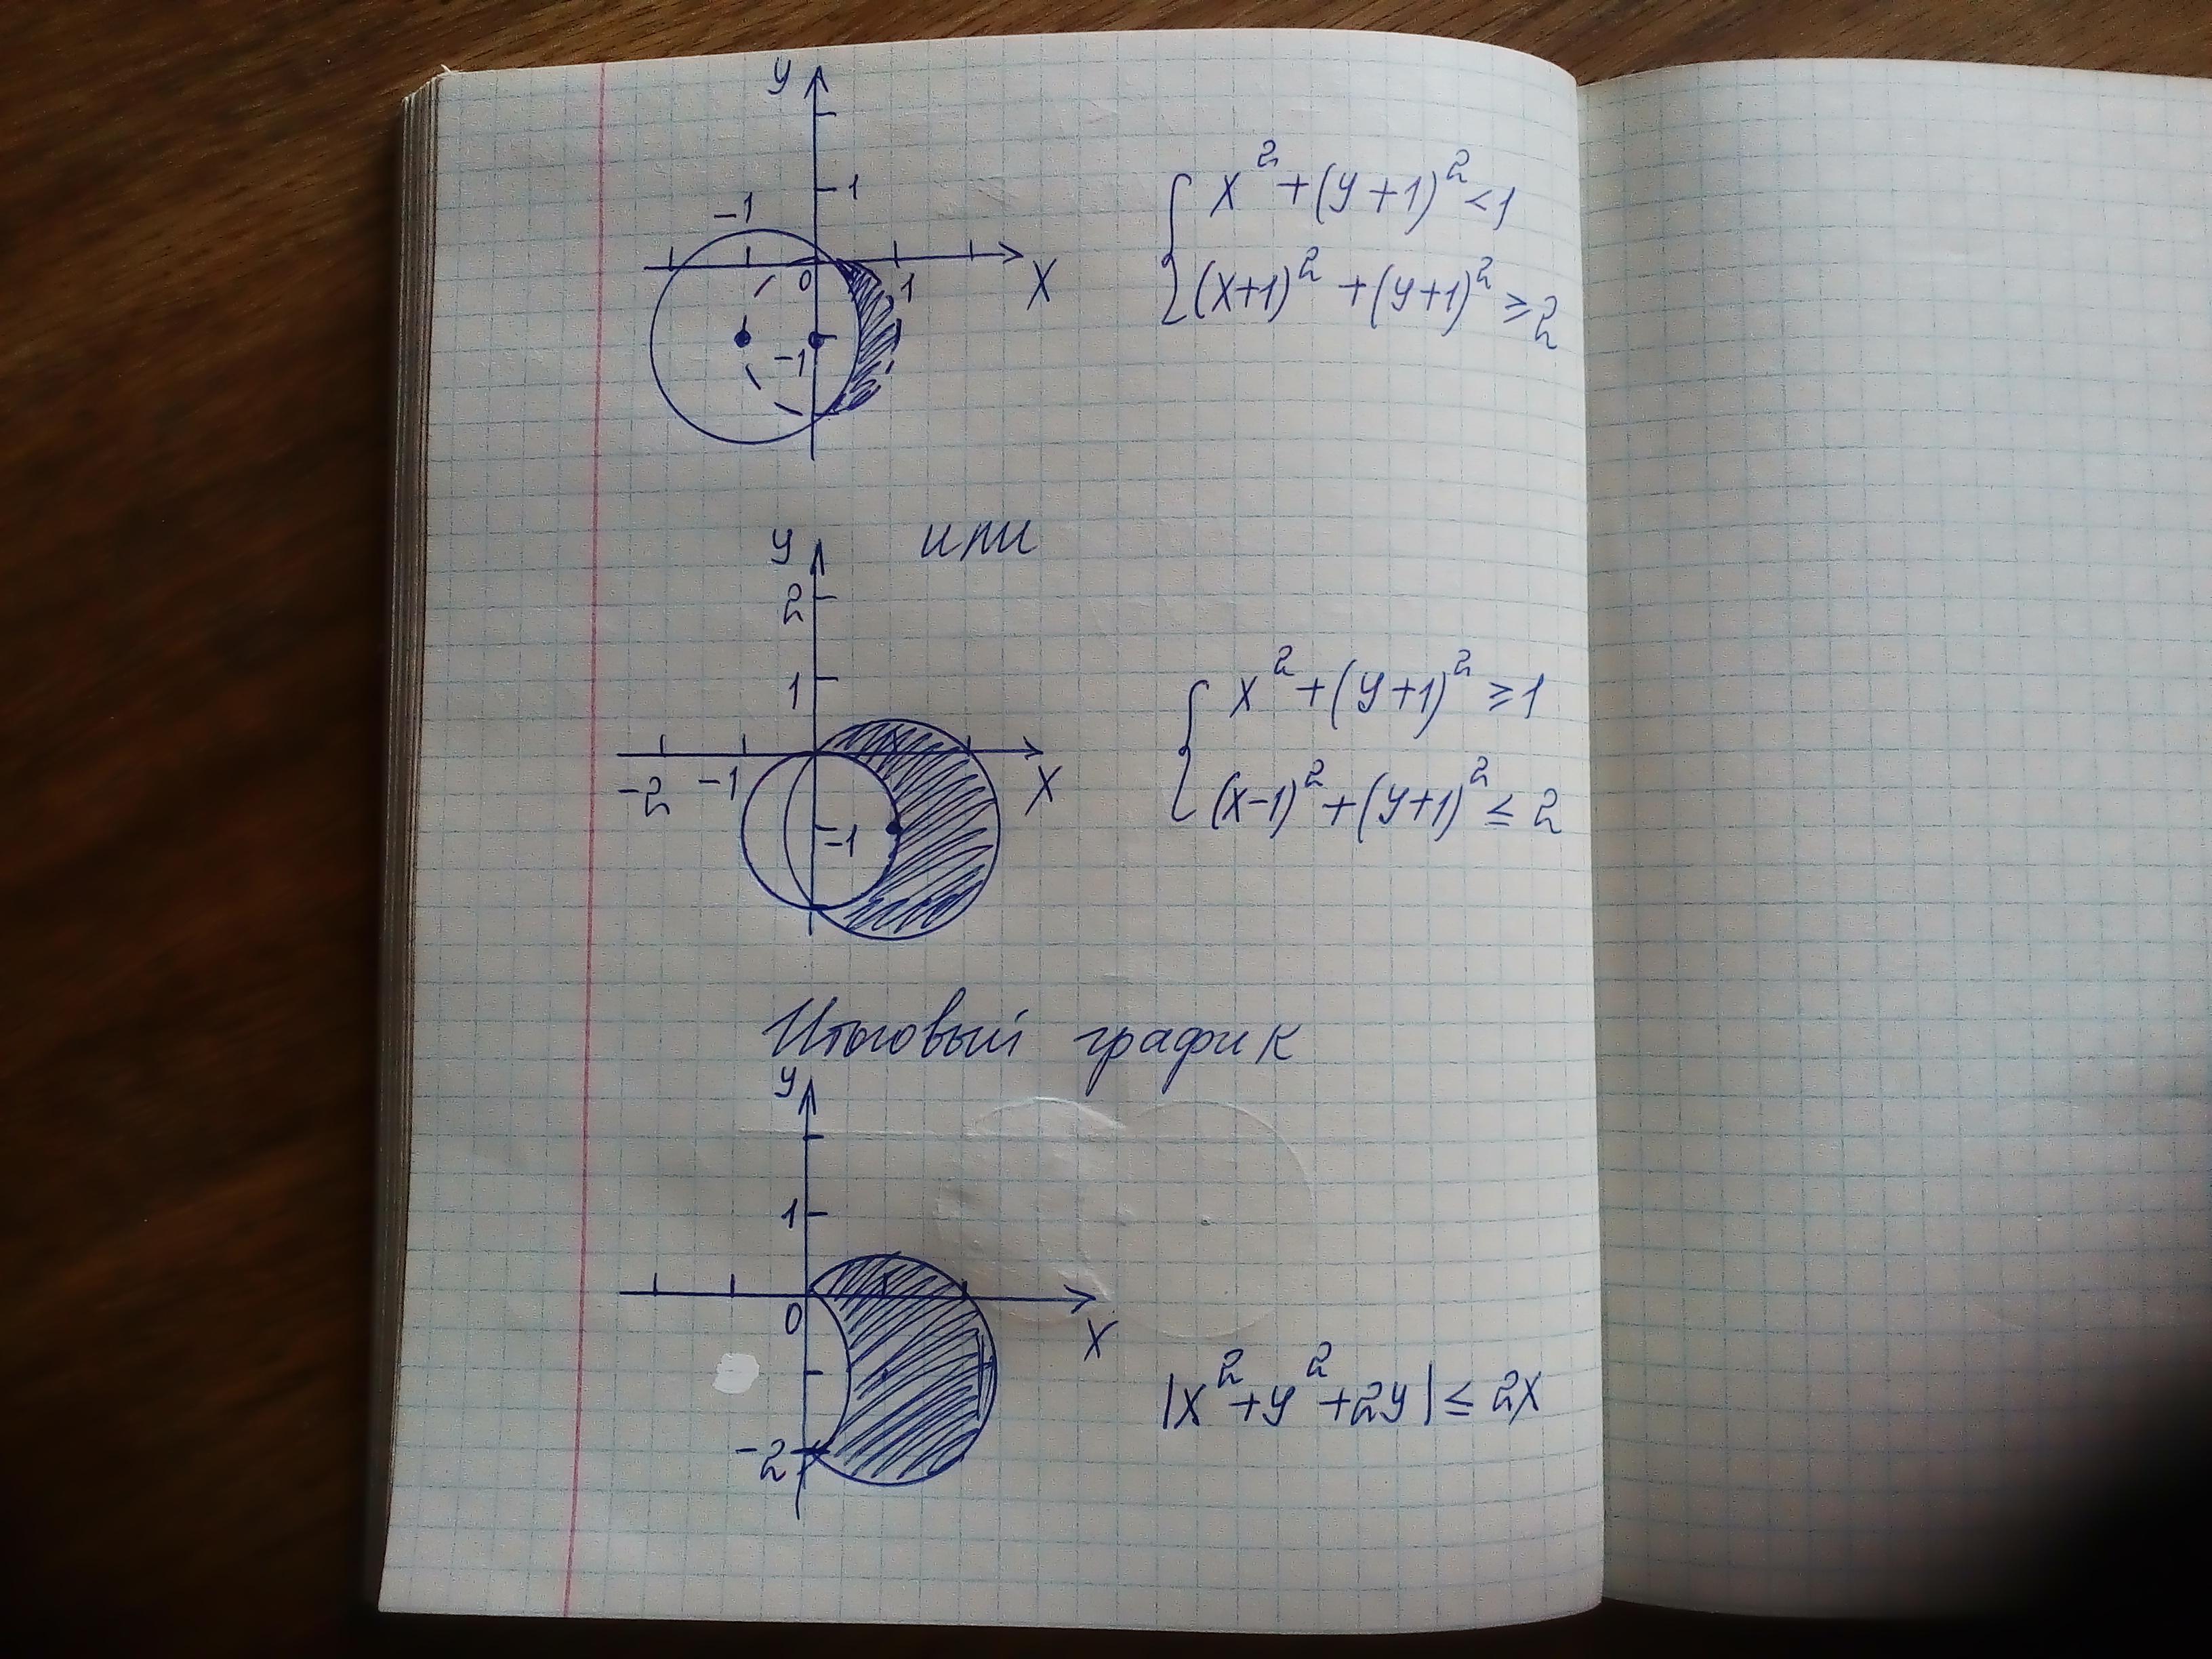 y
1
-1
0
1
X
-1
x² + (y+1)² < 1
(x+1)² + (y+1)² ≥ 2
или
y
2
1
-2 -1
X
-1
x² + (y+1)² ≥ 1
(x-1)² + (y+1)² ≤ 2
Итоговый график
y
1
0
X
-2
|x² + y² + 2y| ≤ 2x